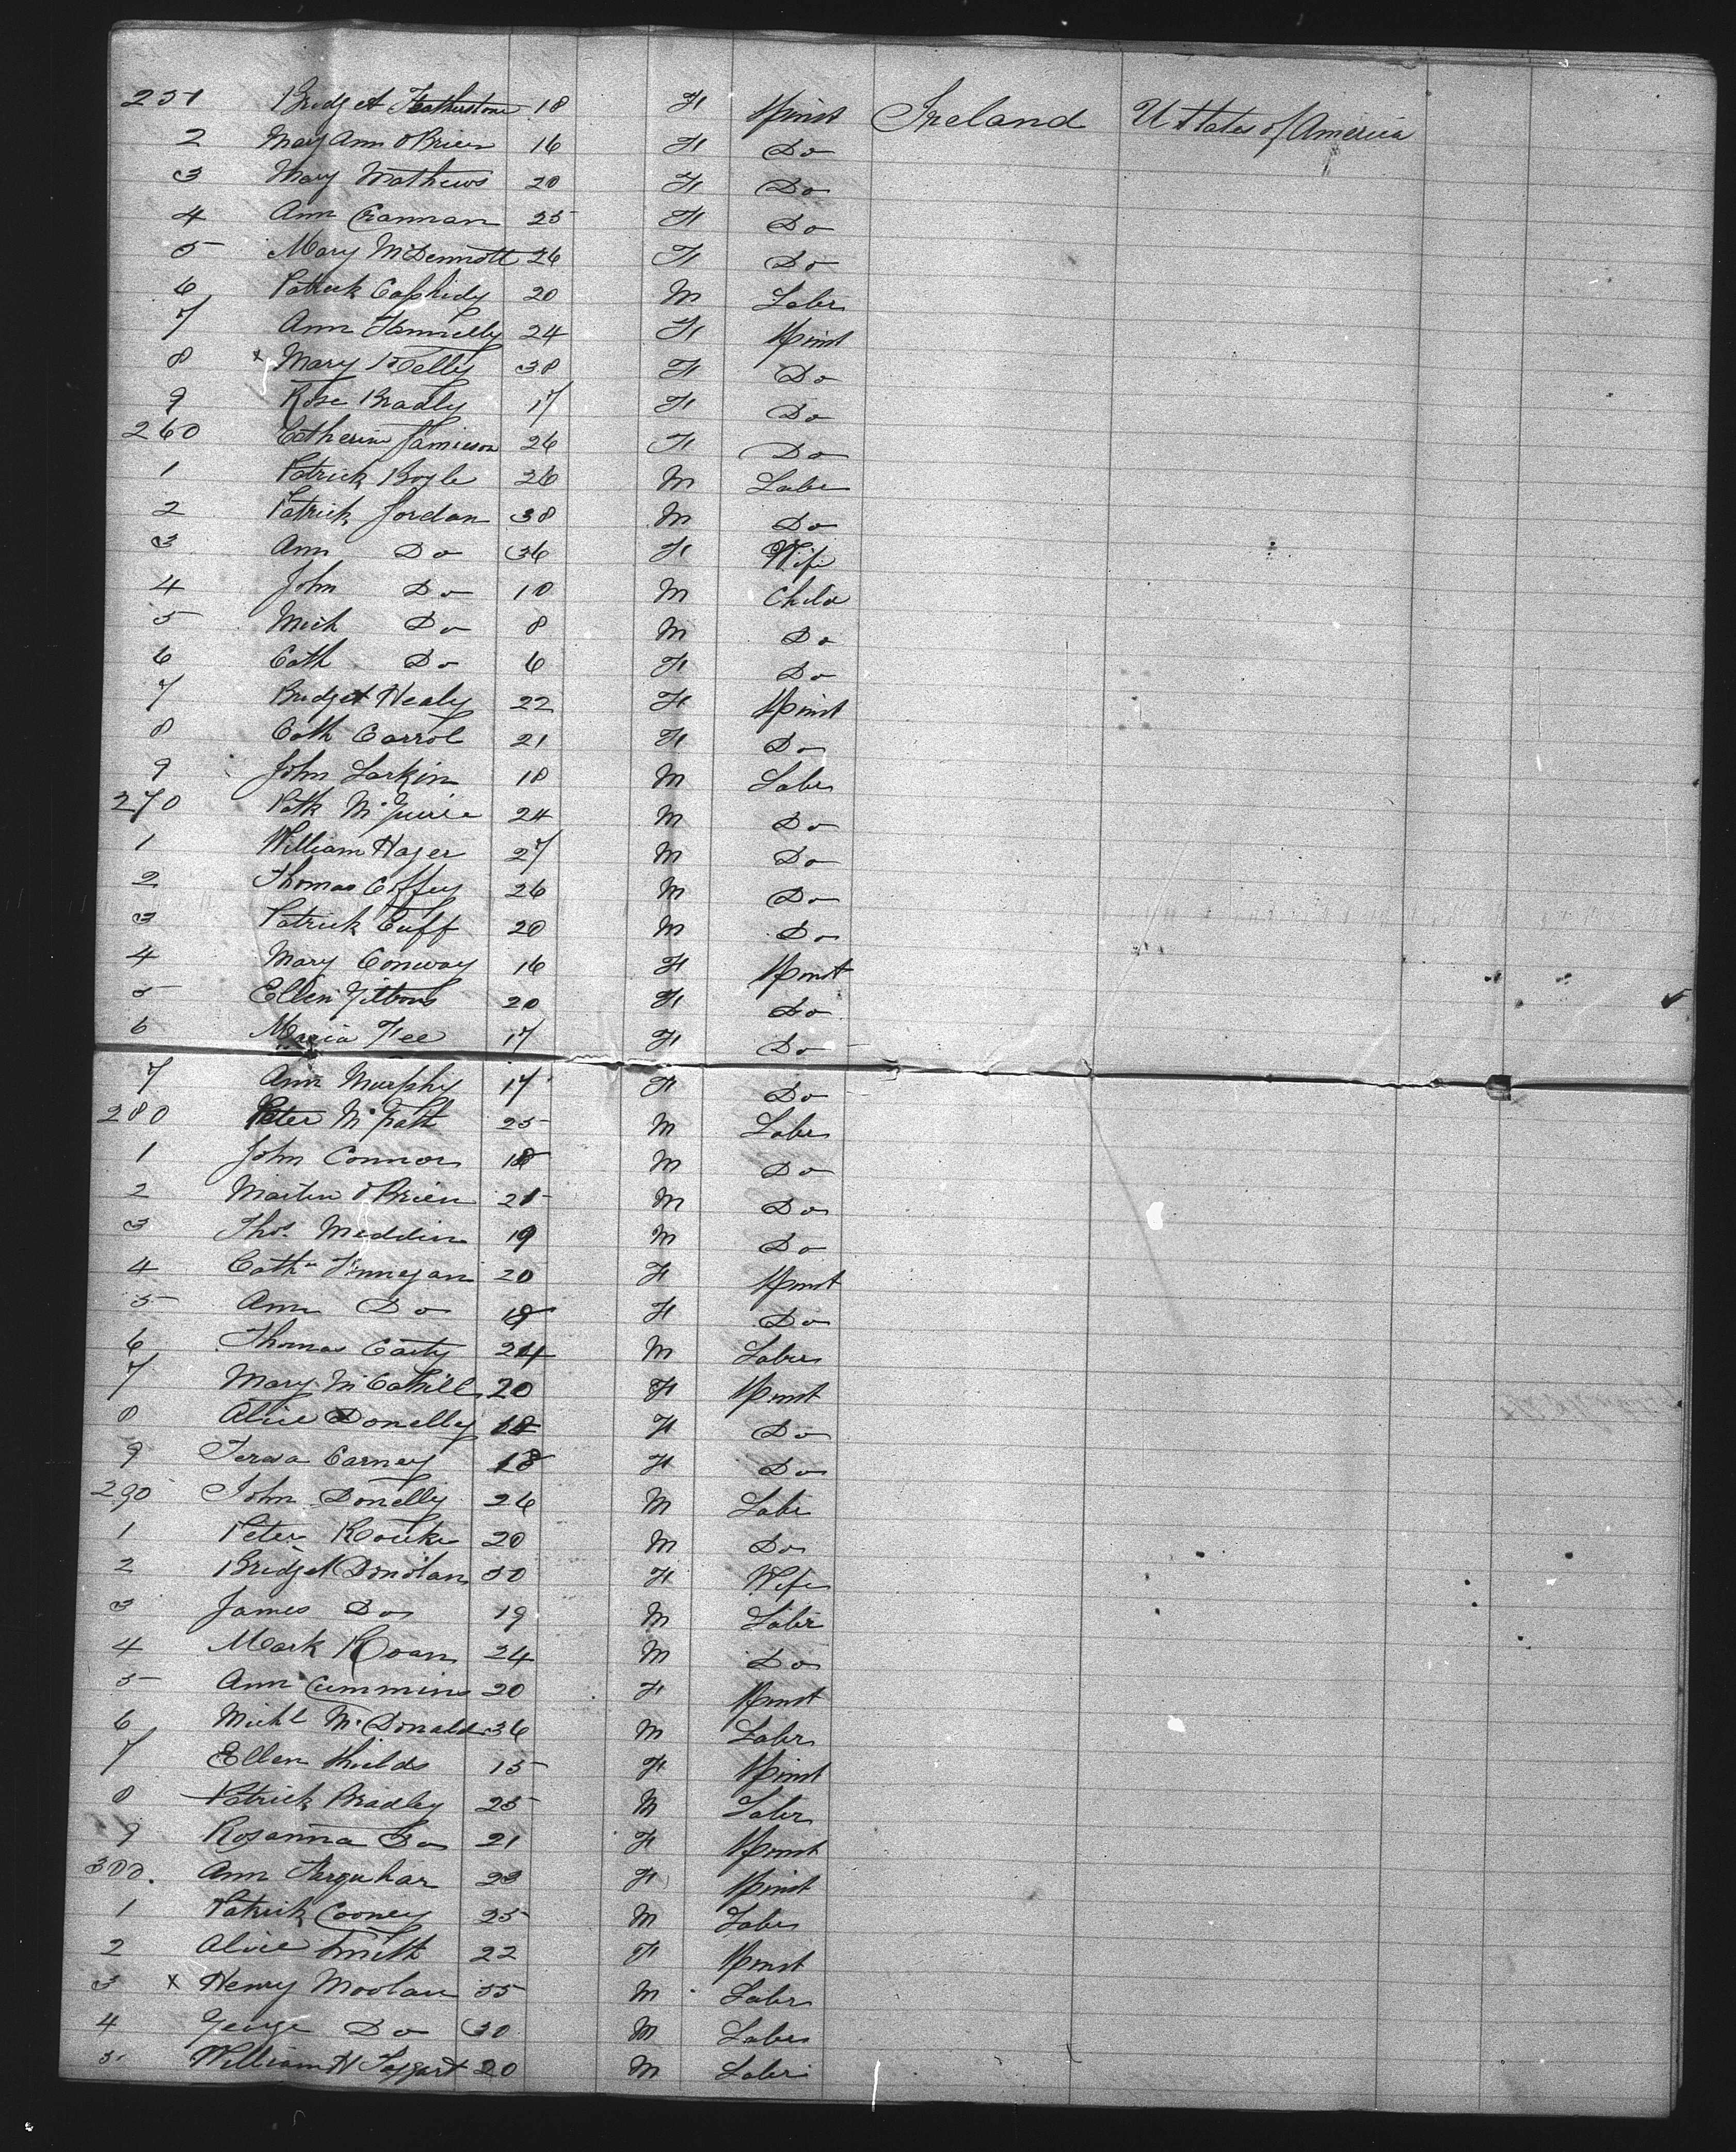 251 Bridget Featherstone 18 F Spinst Ireland U States of America
2 Mary Ann OBrien 16 F Do
3 Mary Mathews 20 F Do
4 Ann 25 F Do
5 Mary McDermott 26 F Do
6 Patrick Cassidy 20 M Labr
7 Ann 24 F Spinst
8 x Mary Kelly 38 F Do
9 Rose Bradly 17 F Do
260 Catherine Jamieson 26 F Do
1 Patrick Boyle 26 M Labr
2 Patrick Jordan 38 M Do
3 Ann Do 36 F Wife
4 John Do 10 M Child
5 Mich Do 8 M Do
6 Cath Do 6 F Do
7 Bridget Healy 22 F Spinst
8 Cath Carrol 21 F Do
9 John Larkin 18 M Labr
270 Patk McGuire 24 M Do
1 William Hager 27 M Do
2 Thomas Coffey 26 M Do
3 Patrick Cuff 20 M Do
4 Mary Conway 16 F Spinst
5 Ellen Gibbons 20 F Do
6 Maria Fee 17 F Do
7 Ann Murphy 17 F Do
280 Peter McGrath 25 M Labr
1 John Connor 18 M Do
2 Martin OBrien 21 M Do
3 Thos. Meddin 19 M Do
4 Cath Finnegan 20 F Spinst
5 Ann Do F Do
6 Thomas Carty 24 M Labr
7 Mary McCahill 20 F Spinst
8 Alice Donelly F Do
9 Teresa Carney 18 F Do
290 John Donelly 26 M Labr
1 Peter Rourke 20 M Do
2 Bridget Donolan 50 F Wife
3 James Do 19 M Labr
4 Mark Roan 24 M Do
5 Ann Cummins 20 F Spinst
6 Michl McDonald 36 M Labr
7 Ellen Shields 15 F Spinst
8 Patrick Bradley 25 M Labr
9 Rosanna Do 21 F Spinst
300. Ann Farquhar 23 F Spinst
1 Patrick Cooney 25 M Labr
2 Alice Smith 22 F Spinst
3 x Henry Moolan 55 M Labr
4 George Do 30 M Labr
5 William H Taggart 20 M Labr